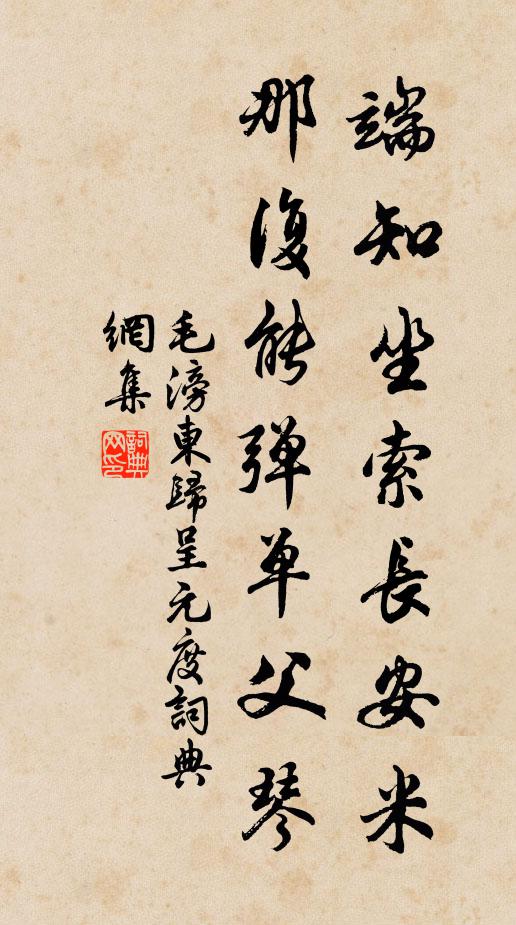 端知坐索長安米
那復能弹单父琴
毛滂東歸呈元度詞典
網集
詞典
网印